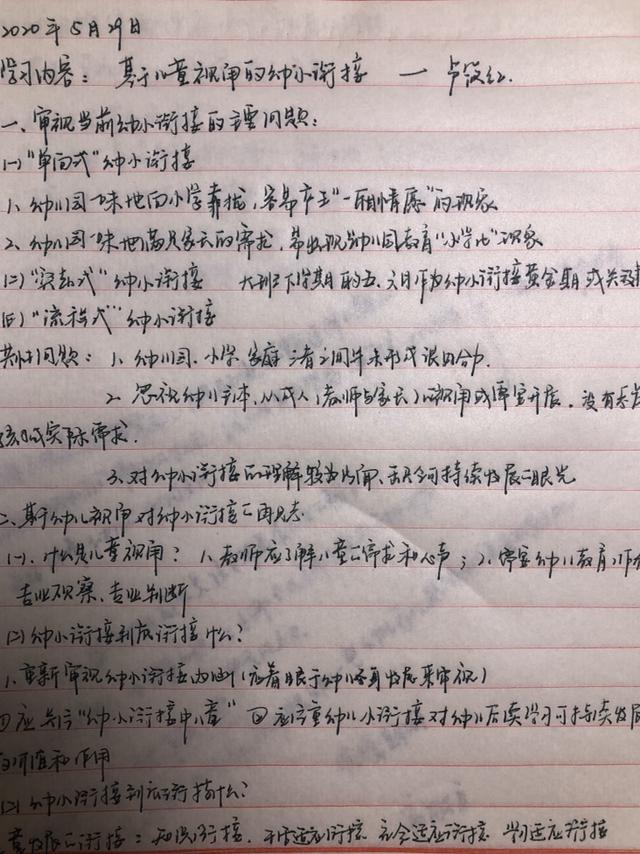 2020年5月29日
学习内容：基于儿童视角的幼小衔接 — 卢筱红.
一、审视当前幼小衔接的主要问题：
(一)"单向式"幼小衔接
1、幼儿园一味地向小学靠拢，容易产生"一厢情愿"的现象
2、幼儿园一味地满足家长的需求，常出现幼儿园教育"小学化"现象
(二)"突击式"幼小衔接 大班下学期的五、六月作为幼小衔接黄金期或关
(三)"流程式"幼小衔接
问题：1、幼儿园、小学、家庭三者之间并未形成 合力.
2、忽视幼儿主体、从成人（教师与家长）的视角或 开展，没有
孩 实际需求.
3、对幼小衔接的理解较为 可持续发展的眼光
二、基于幼儿视角对幼小衔接的再思
(一)、什么是儿童视角？ 1、教师应了解儿童的需求和心声；2、 幼儿教育工作
专业观察、专业判断
(二)幼小衔接到底衔接什么？
1、重新审视幼小衔接内涵（应着眼于幼儿终身发展来审视）
应 "幼小衔接中儿童" 应注重幼儿小衔接对幼儿后续学习可持续发展
的价值和作用
幼小衔接到底衔接什么？
发展的衔接： 衔接、 适应衔接、社会适应衔接、学习适应衔接